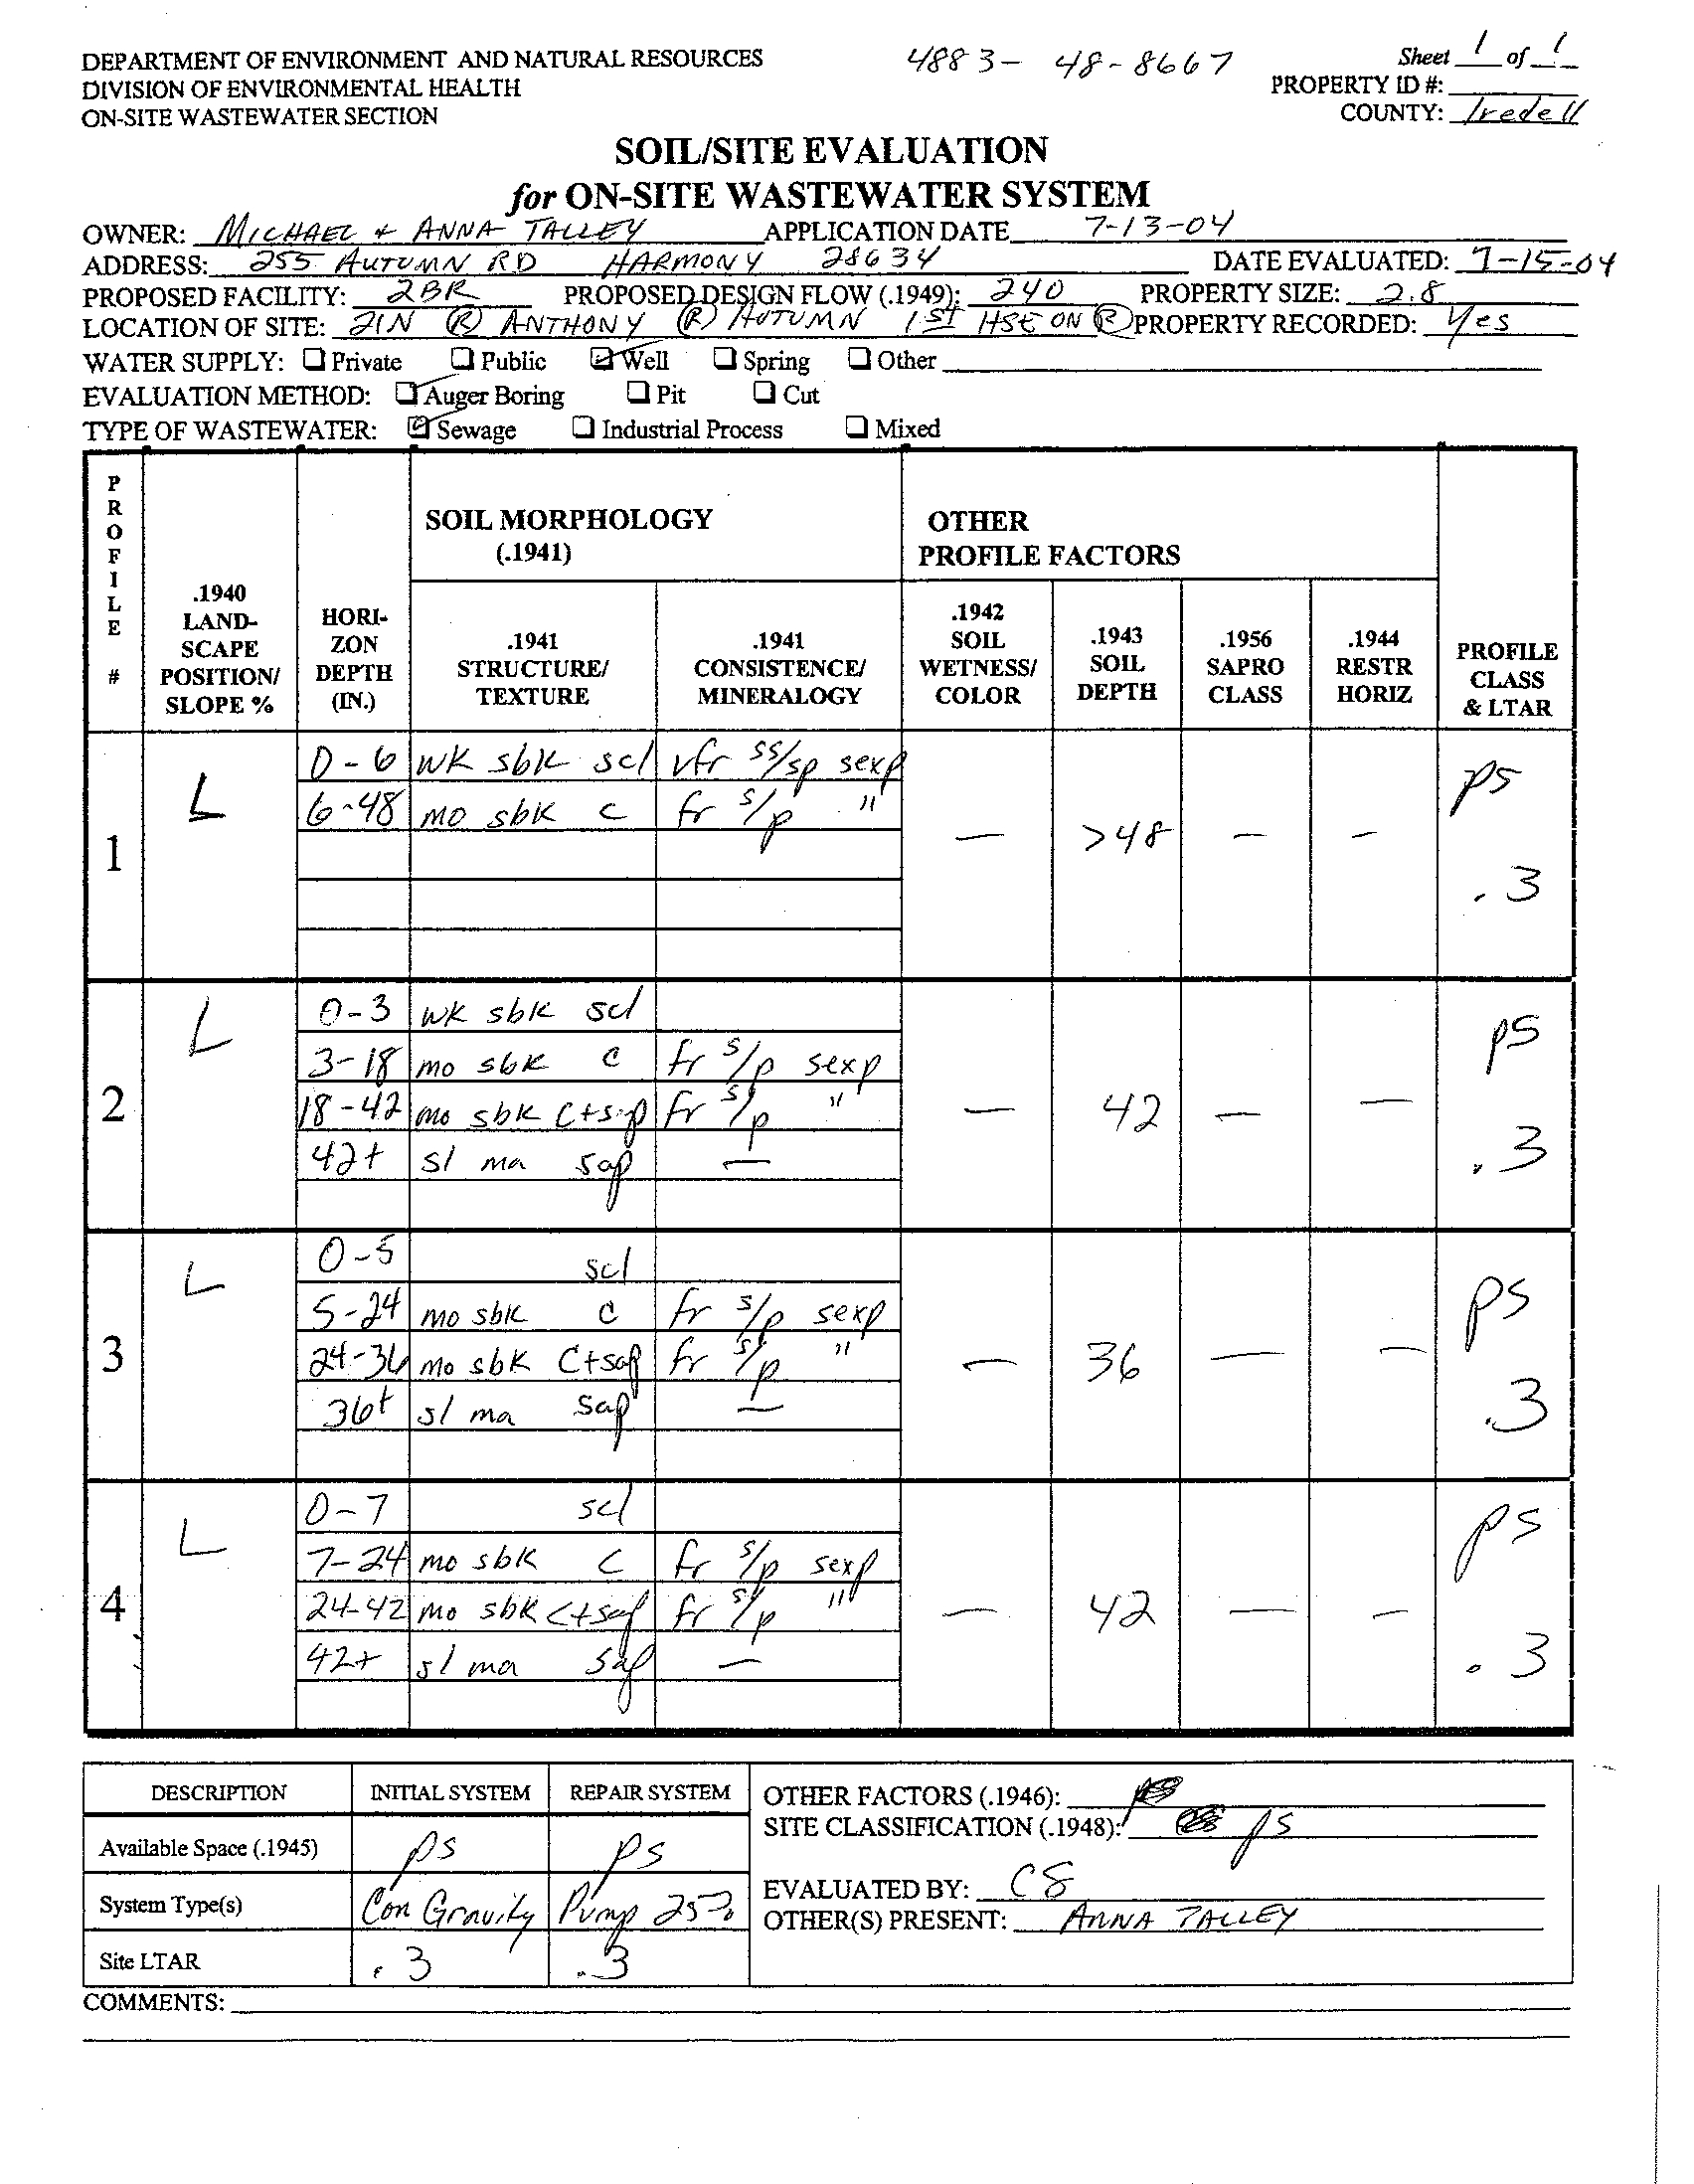 DEPARTMENT OF ENVIRONMENT AND NATURAL RESOURCES 4883- 48-8667 Sheet 1 of 1
DIVISION OF ENVIRONMENTAL HEALTH PROPERTY ID #:
ON-SITE WASTEWATER SECTION COUNTY: Iredell
SOIL/SITE EVALUATION
for ON-SITE WASTEWATER SYSTEM
OWNER: MICHAEL + ANNA TALLEY APPLICATION DATE 7-13-04
ADDRESS: 255 AUTUMN RD HARMONY 28634 DATE EVALUATED: 7-15-04
PROPOSED FACILITY: 2BR PROPOSED DESIGN FLOW (.1949): 240 PROPERTY SIZE: 2.8
LOCATION OF SITE: 21N (R) ANTHONY (R) AUTUMN 1ST HSE ON (R) PROPERTY RECORDED: Yes
WATER SUPPLY: Private Public Well Spring Other
EVALUATION METHOD: Auger Boring Pit Cut
TYPE OF WASTEWATER: Sewage Industrial Process Mixed
PROFILE #
.1940 LAND-SCAPE POSITION/ SLOPE %
HORI-ZON DEPTH (IN.)
SOIL MORPHOLOGY (.1941)
.1941 STRUCTURE/ TEXTURE
.1941 CONSISTENCE/ MINERALOGY
OTHER PROFILE FACTORS
.1942 SOIL WETNESS/ COLOR
.1943 SOIL DEPTH
.1956 SAPRO CLASS
.1944 RESTR HORIZ
PROFILE CLASS & LTAR
1 L
0-6 wk sbk scl vfr ss/sp sexp
6-48 mo sbk c fr s/p "
— >48 — — ps .3
2 L
0-3 wk sbk scl
3-18 mo sbk c fr s/p sexp
18-42 mo sbk c+sap fr s/p "
42+ sl ma sap —
— 42 — — ps .3
3 L
0-5 scl
5-24 mo sbk c fr s/p sexp
24-36 mo sbk c+sap fr s/p "
36+ sl ma sap —
— 36 — — ps .3
4 L
0-7 scl
7-24 mo sbk c fr s/p sexp
24-42 mo sbk c+sap fr s/p "
42+ sl ma sap —
— 42 — — ps .3
DESCRIPTION INITIAL SYSTEM REPAIR SYSTEM
Available Space (.1945) ps ps
System Type(s) Con Gravity Pump 25%
Site LTAR .3 .3
OTHER FACTORS (.1946):
SITE CLASSIFICATION (.1948): ps
EVALUATED BY: CS
OTHER(S) PRESENT: ANNA TALLEY
COMMENTS: